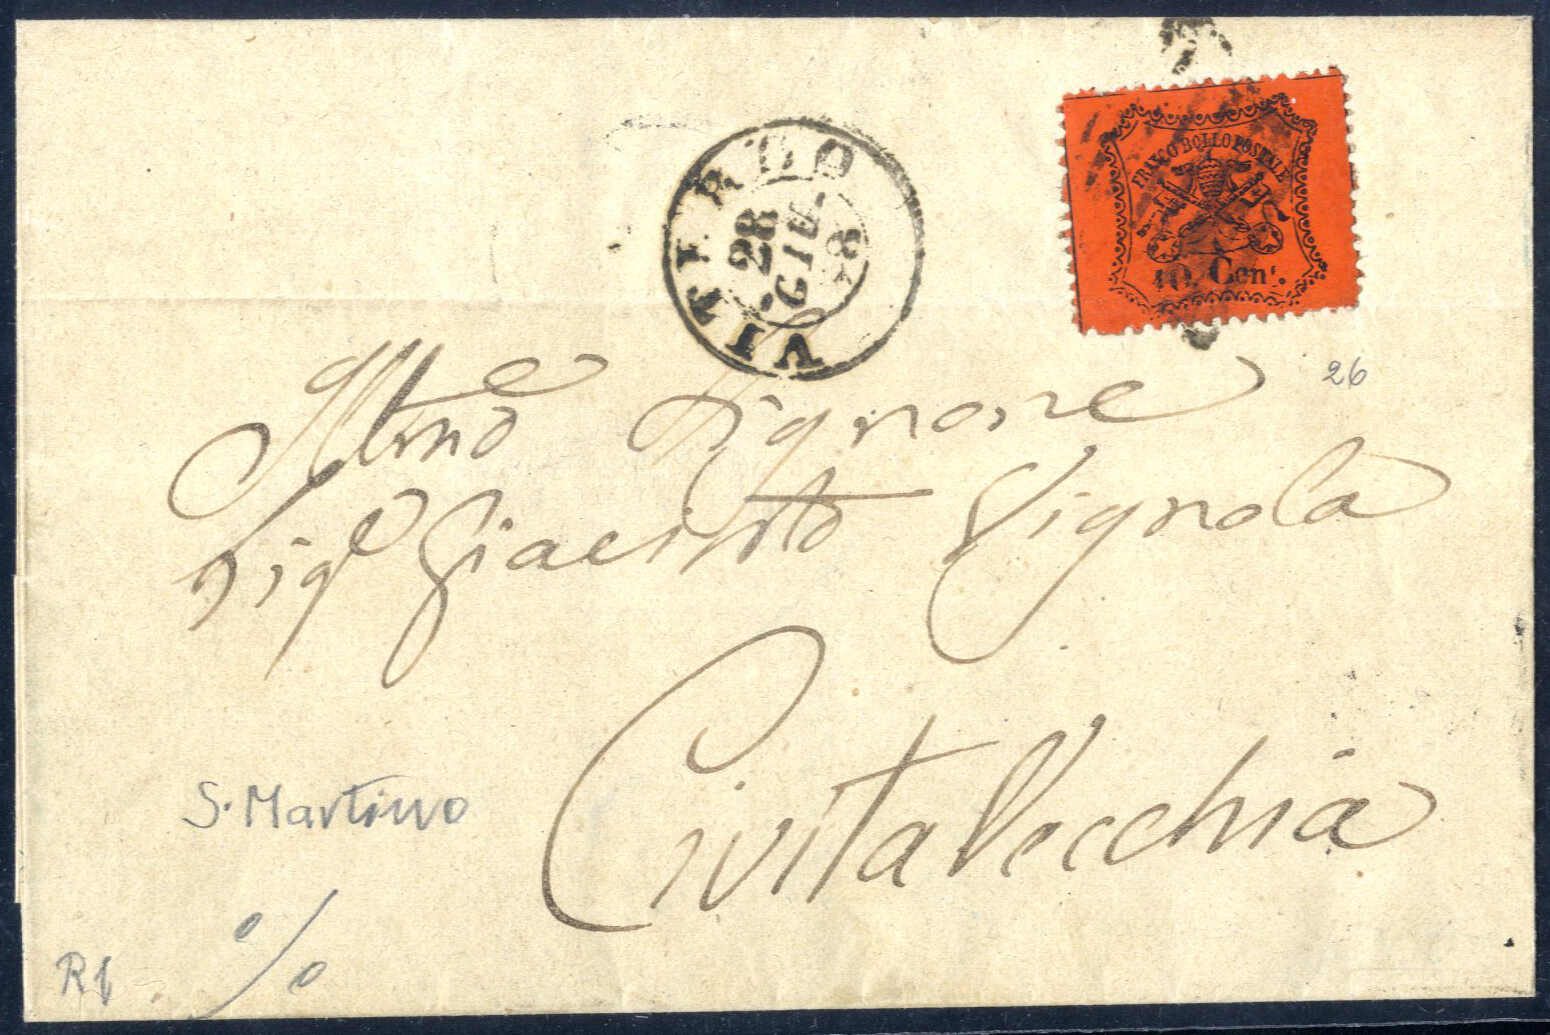 VITERBO
28
GIU.
8
FRANCO BOLLO POSTALE
10 Cent.
26
Illmo Signore
Sigr Giacinto Vignola
CivitaVecchia
S. Martino